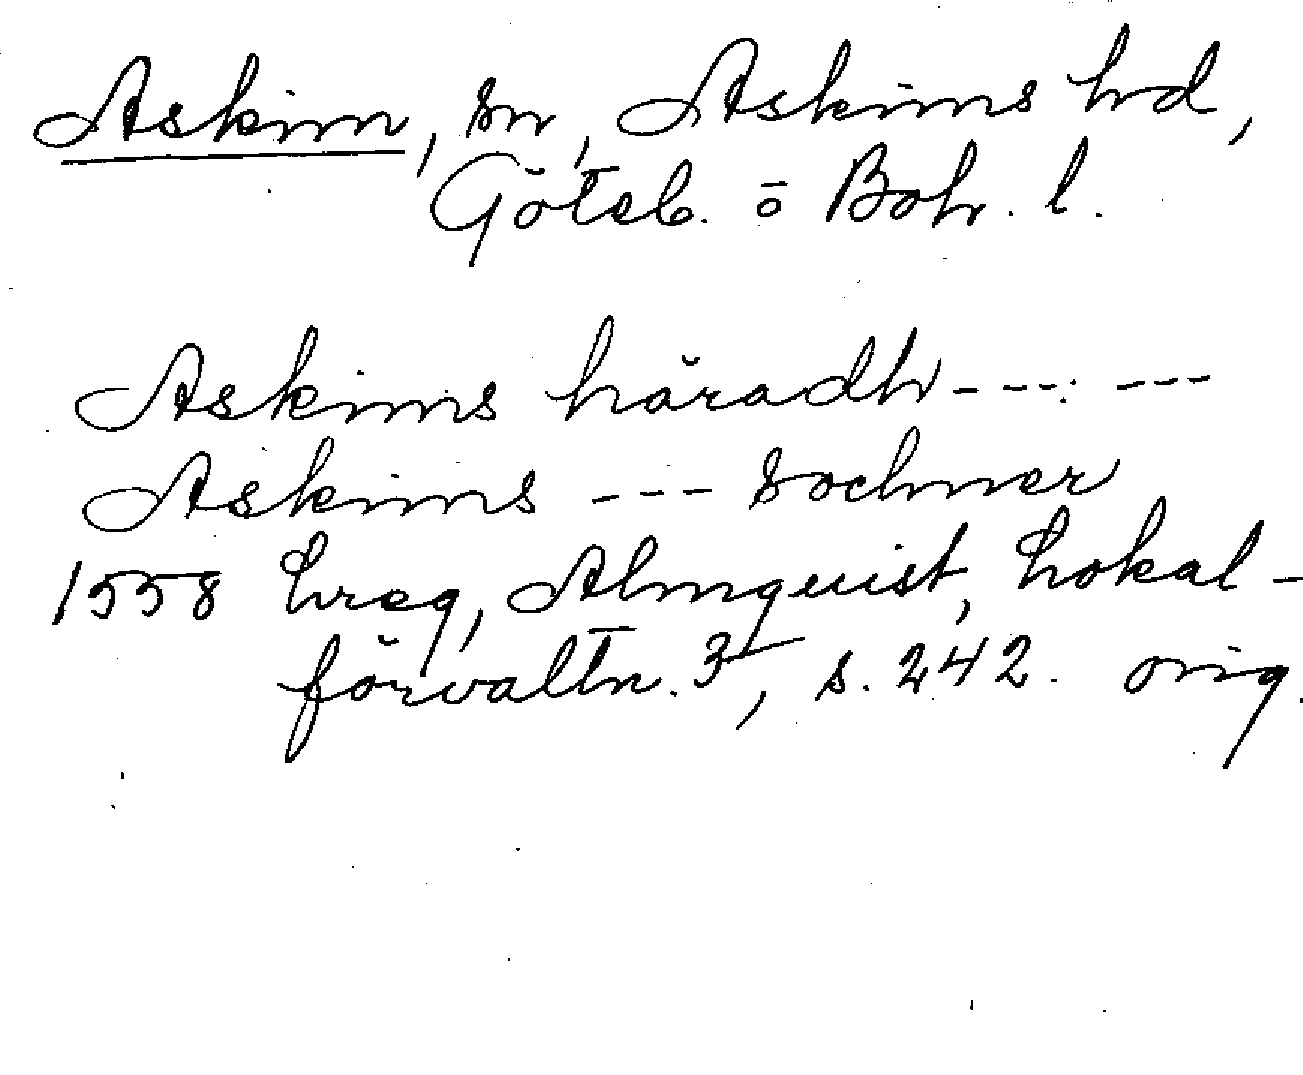 Askim, sn, Askims hd,
Göteb. o Boh. l.
Askims häradh --- ---
Askims --- sochner
1558 hreg, Almquist, Lokal-
förvaltn. 3, s. 242. orig.